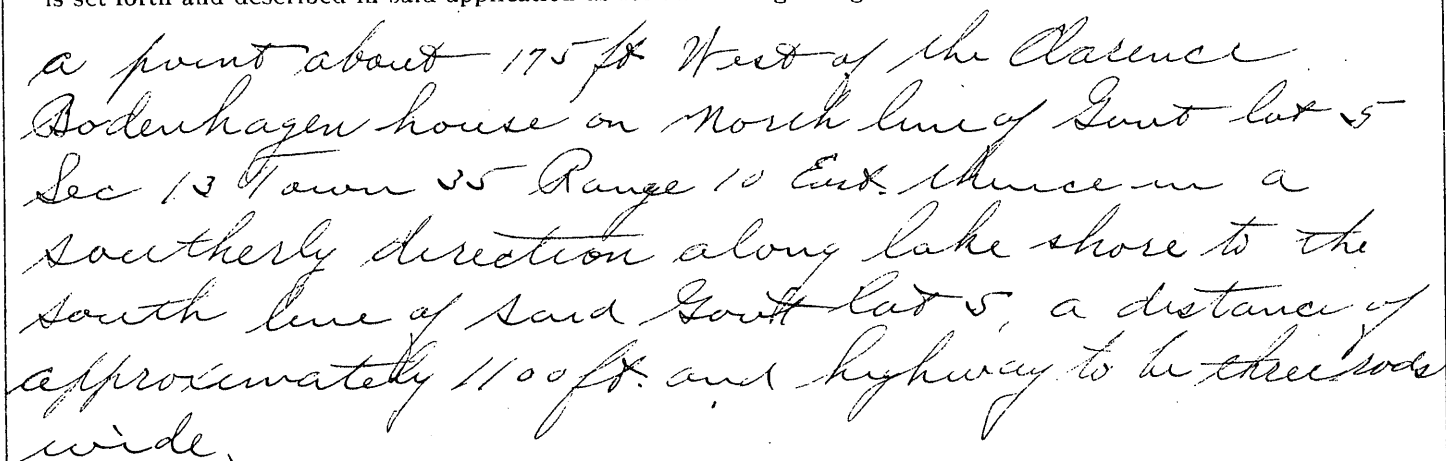 is set forth and described in said application
a point about 175 ft West of the Clarence
Bodenhagen house on North line of Govt lot 5
Sec 13 Town 35 Range 10 East. thence in a
southerly direction along lake shore to the
south line of said Gov't lot 5, a distance of
approximately 1100 ft. and highway to be three rods
wide.